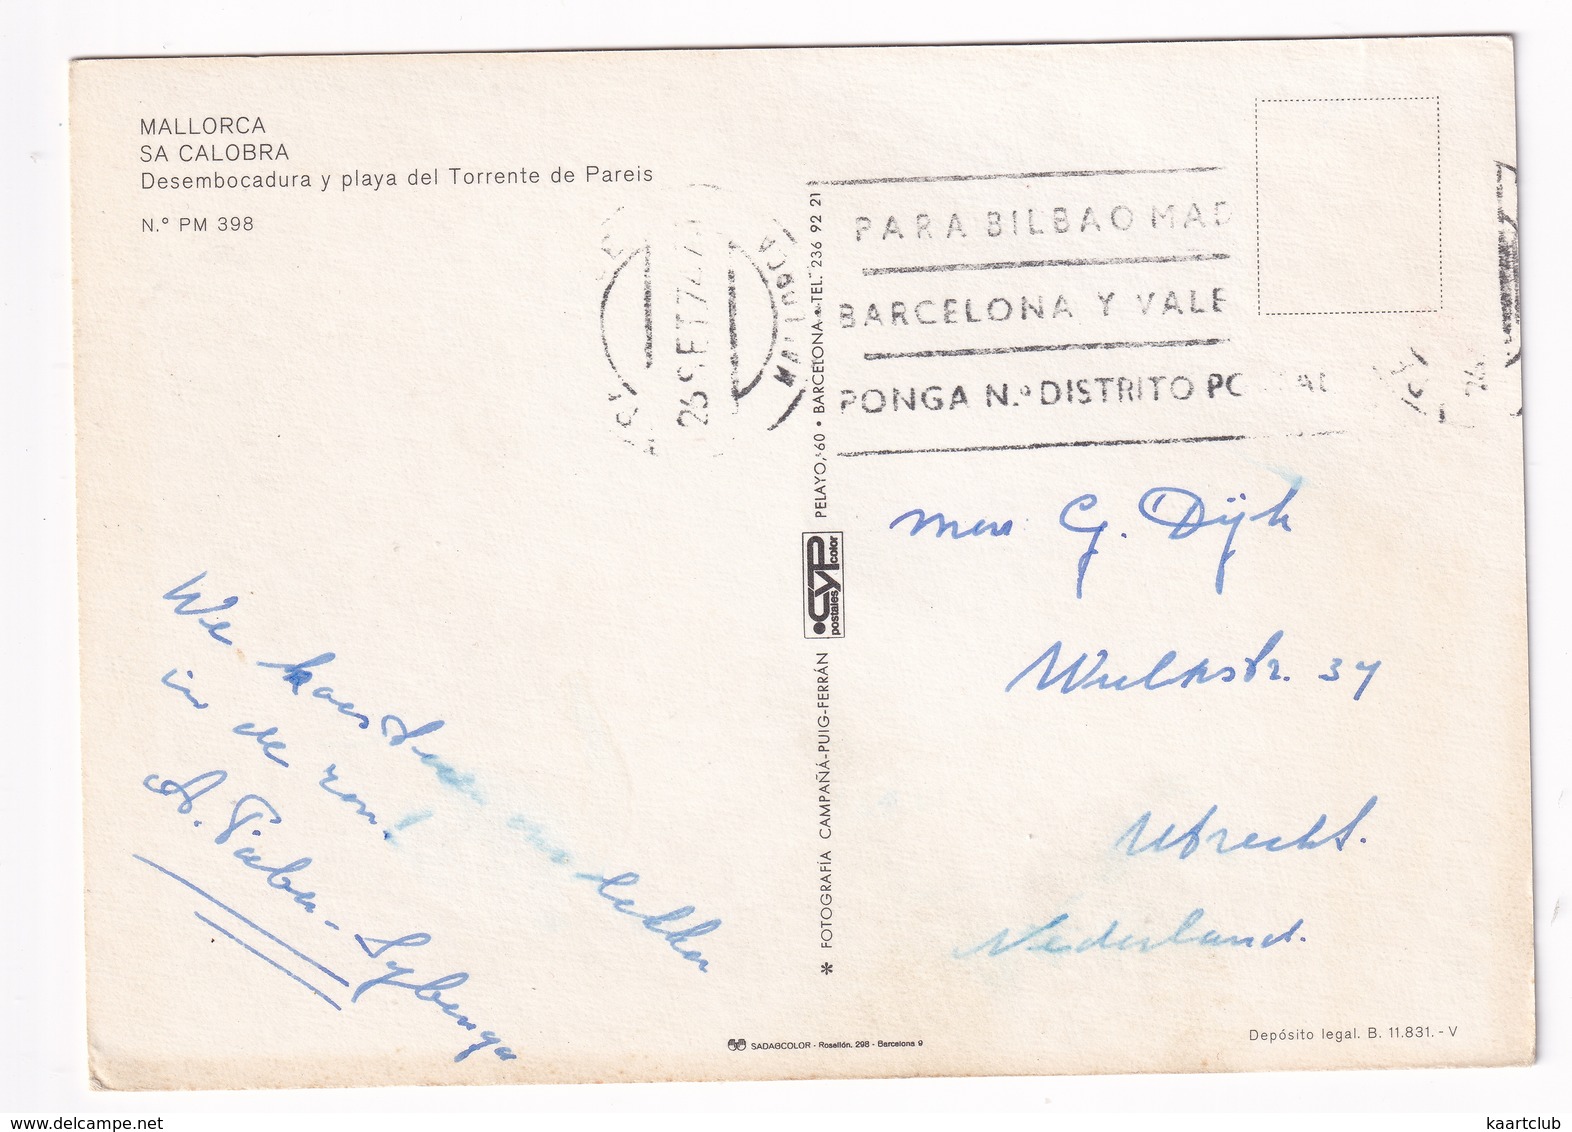 MALLORCA
SA CALOBRA
Desembocadura y playa del Torrente de Pareis
N.º PM 398
26 SET 74
MALLORCA
PARA BILBAO MAD
BARCELONA Y VALE
PONGA N.º DISTRITO PO
We
lekker
in de zon!
A. Taber-Sybenga
G. Dijk
37
Utrecht.
Nederland.
* FOTOGRAFÍA CAMPAÑÁ-PUIG-FERRÁN
CYP
postales color
PELAYO, 60 • BARCELONA • TEL. 236 92 21
SADAGCOLOR - Rosellón, 298 - Barcelona 9
Depósito legal. B. 11.831. - V
kaartclub